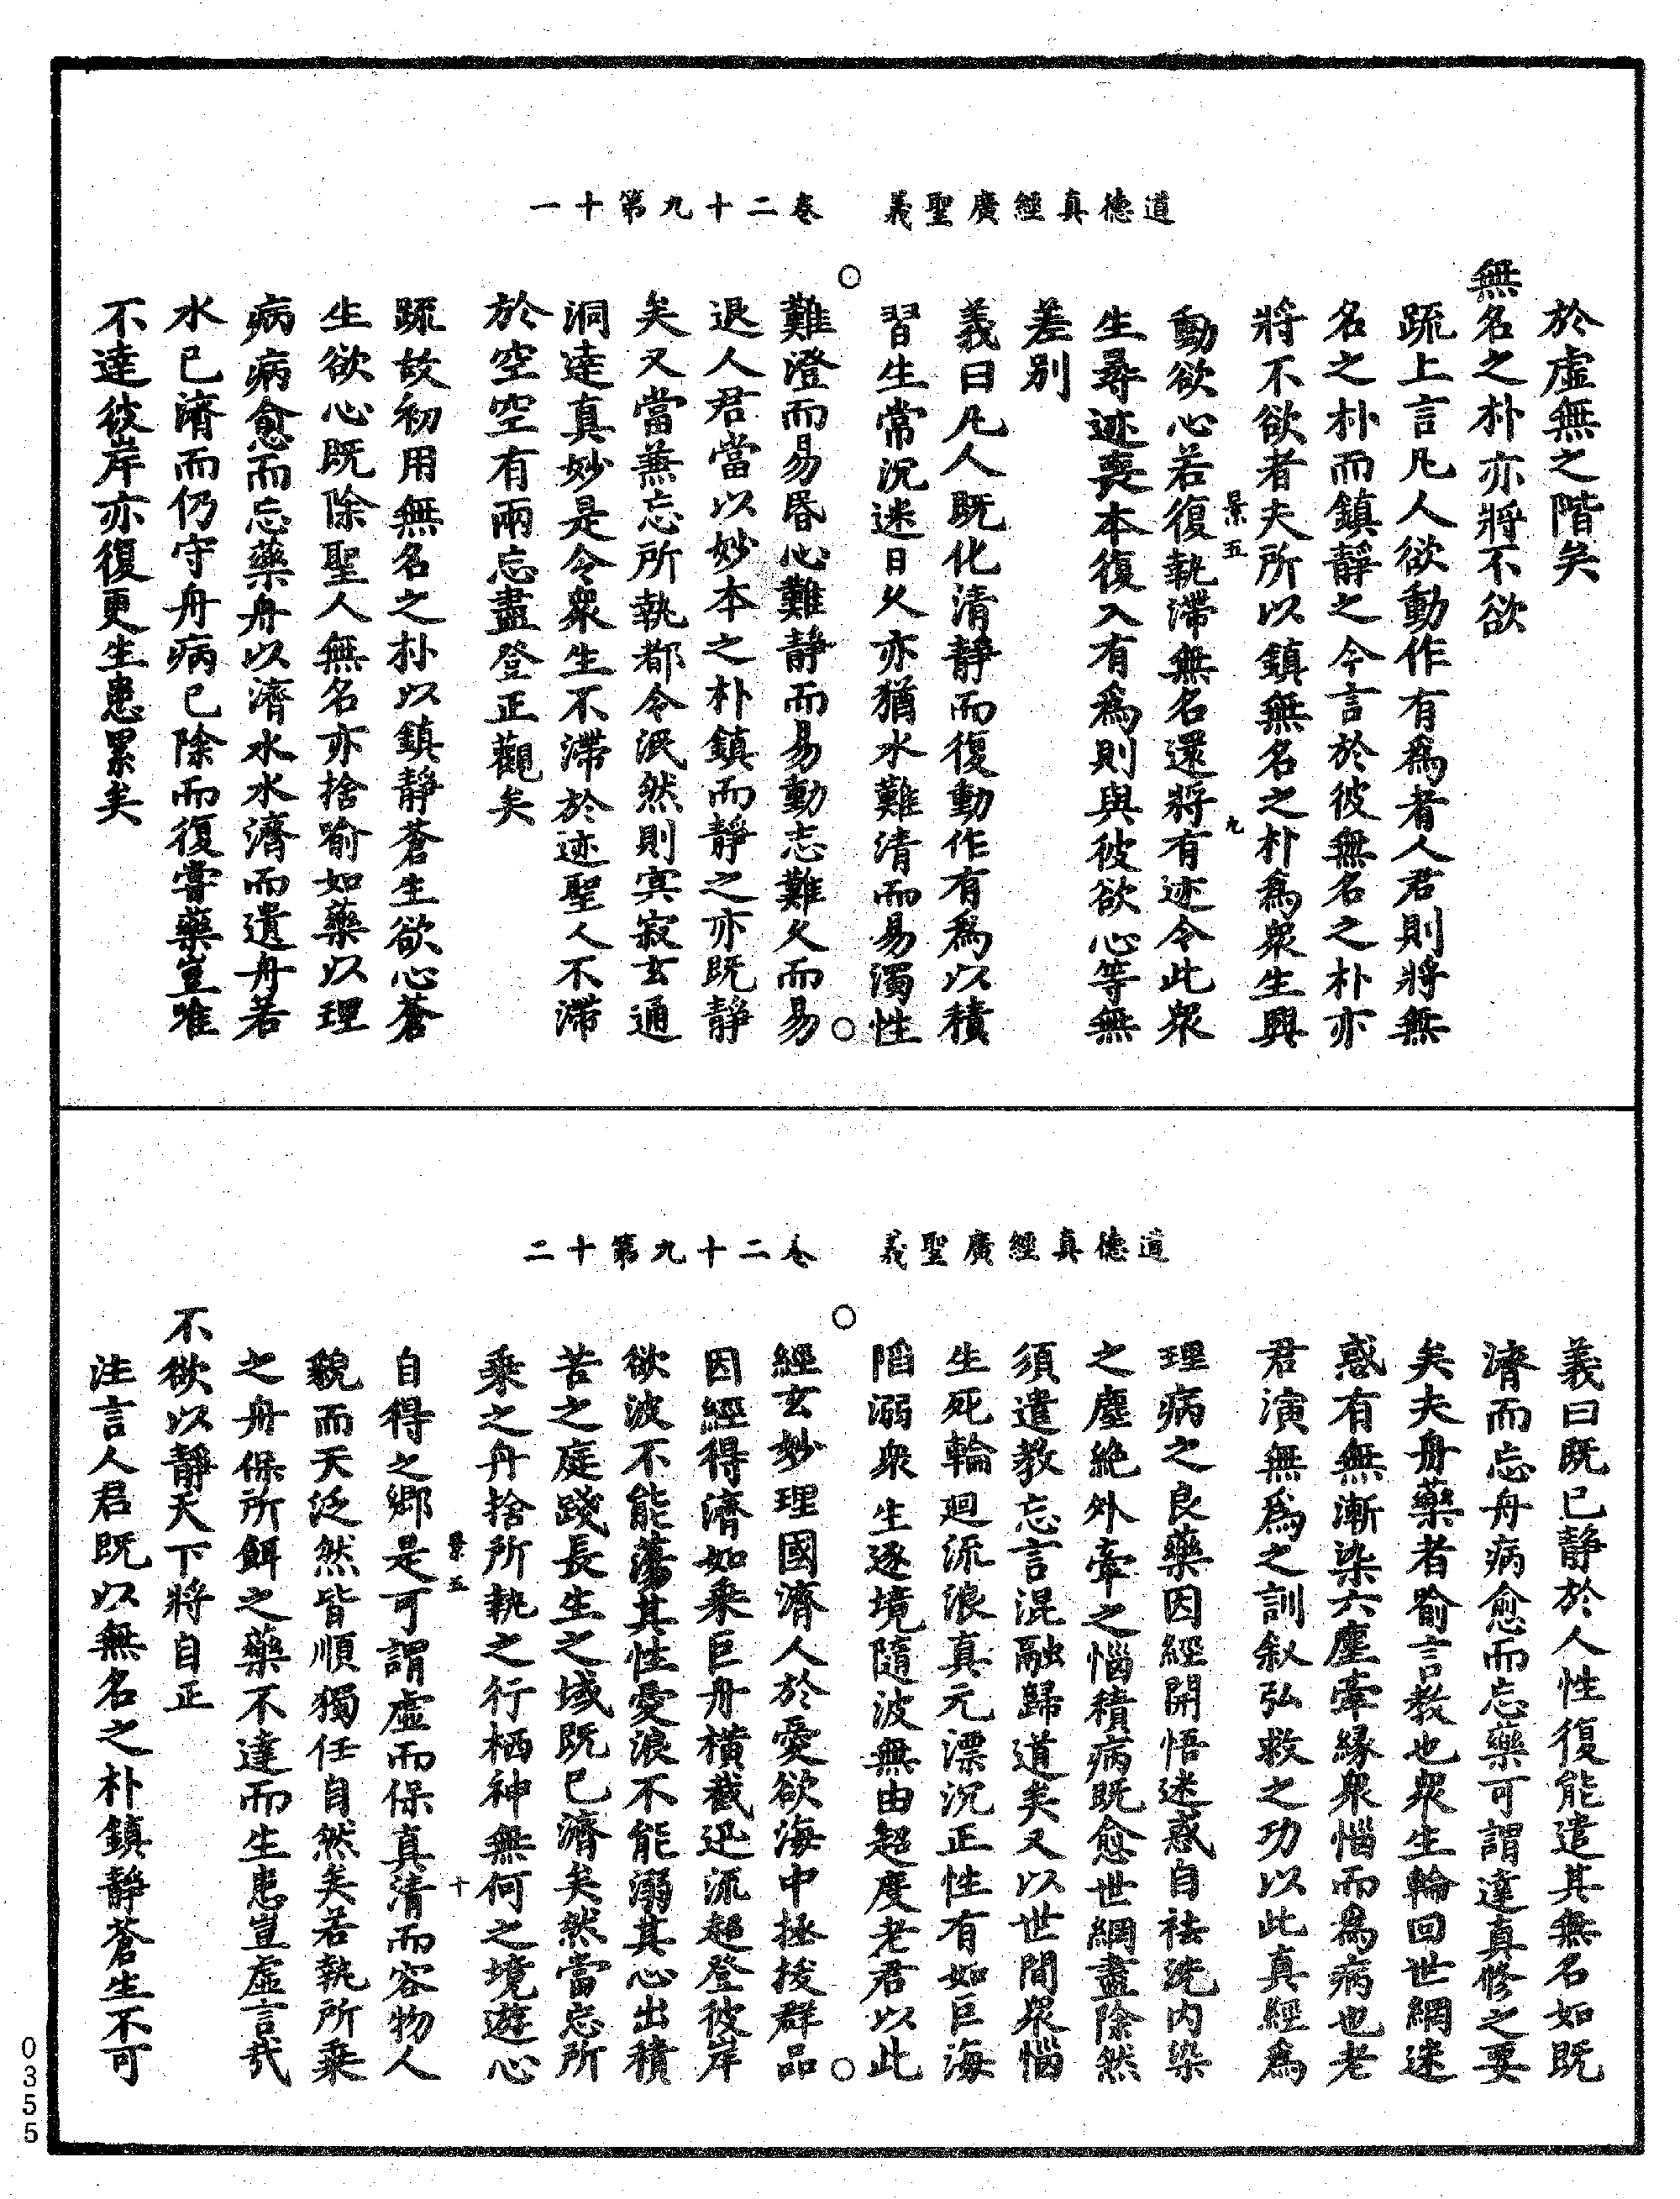 道德真經廣聖義　卷二十九第十一
於虛無之階矣
無名之朴亦將不欲
疏上言凡人欲動作有爲者人君則將無
名之朴而鎮靜之今言於彼無名之朴亦
將不欲者夫所以鎮無名之朴爲衆生興
景五　九
動欲心若復執滯無名還將有迹令此衆
生尋迹喪本復入有爲則與彼欲心等無
差别
義曰凡人既化清静而復動作有爲以積
習生常沉迷日久亦猶水難清而易濁性
難澄而易昬心難靜而易動志難久而易
退人君當以妙本之朴鎮而靜之亦既静
矣又當兼忘所執都令泯然則寂寂玄通
洞達真妙是令衆生不滯於迹聖人不滯
於空空有兩忘盡登正觀矣
疏故初用無名之朴以鎮靜蒼生欲心蒼
生欲心既除聖人無名亦捨喻如藥以理
病病愈而忘藥舟以濟水水濟而遺舟若
水已濟而仍守舟病已除而復嘗藥豈唯
不達彼岸亦復更生患累矣
道德真經廣聖義　卷二十九第十二
義曰既已静於人性復能遣其無名如既
濟而忘舟病愈而忘藥可謂達真修之要
矣夫舟藥者喻言教也衆生輪回世網迷
惑有無漸染六塵牽縁衆惱而爲病也老
君演無爲之訓叙弘救之功以此真經爲
理病之良藥因經開悟迷惑自祛洗内染
之塵絶外牽之惱積病既愈世網盡除然
須遣教忘言混融歸道矣又以世間衆惱
生死輪迴流浪真元漂沉正性有如巨海
陷溺衆生逐境隨波無由超度老君以此
經玄妙理國濟人於愛欲海中拯拔群品
因經得濟如乘巨舟橫截迅流超登彼岸
欲波不能蕩其性愛浪不能溺其心出積
苦之庭踐長生之域既已濟矣然當忘所
乘之舟捨所執之行栖神無何之境遊心
景五　十
自得之鄉是可謂虛而保真清而容物人
貌而天泛然皆順獨任自然矣若執所乘
之舟保所餌之藥不達而生患豈虛言哉
不欲以靜天下將自正
注言人君既以無名之朴鎮靜蒼生不可
0355